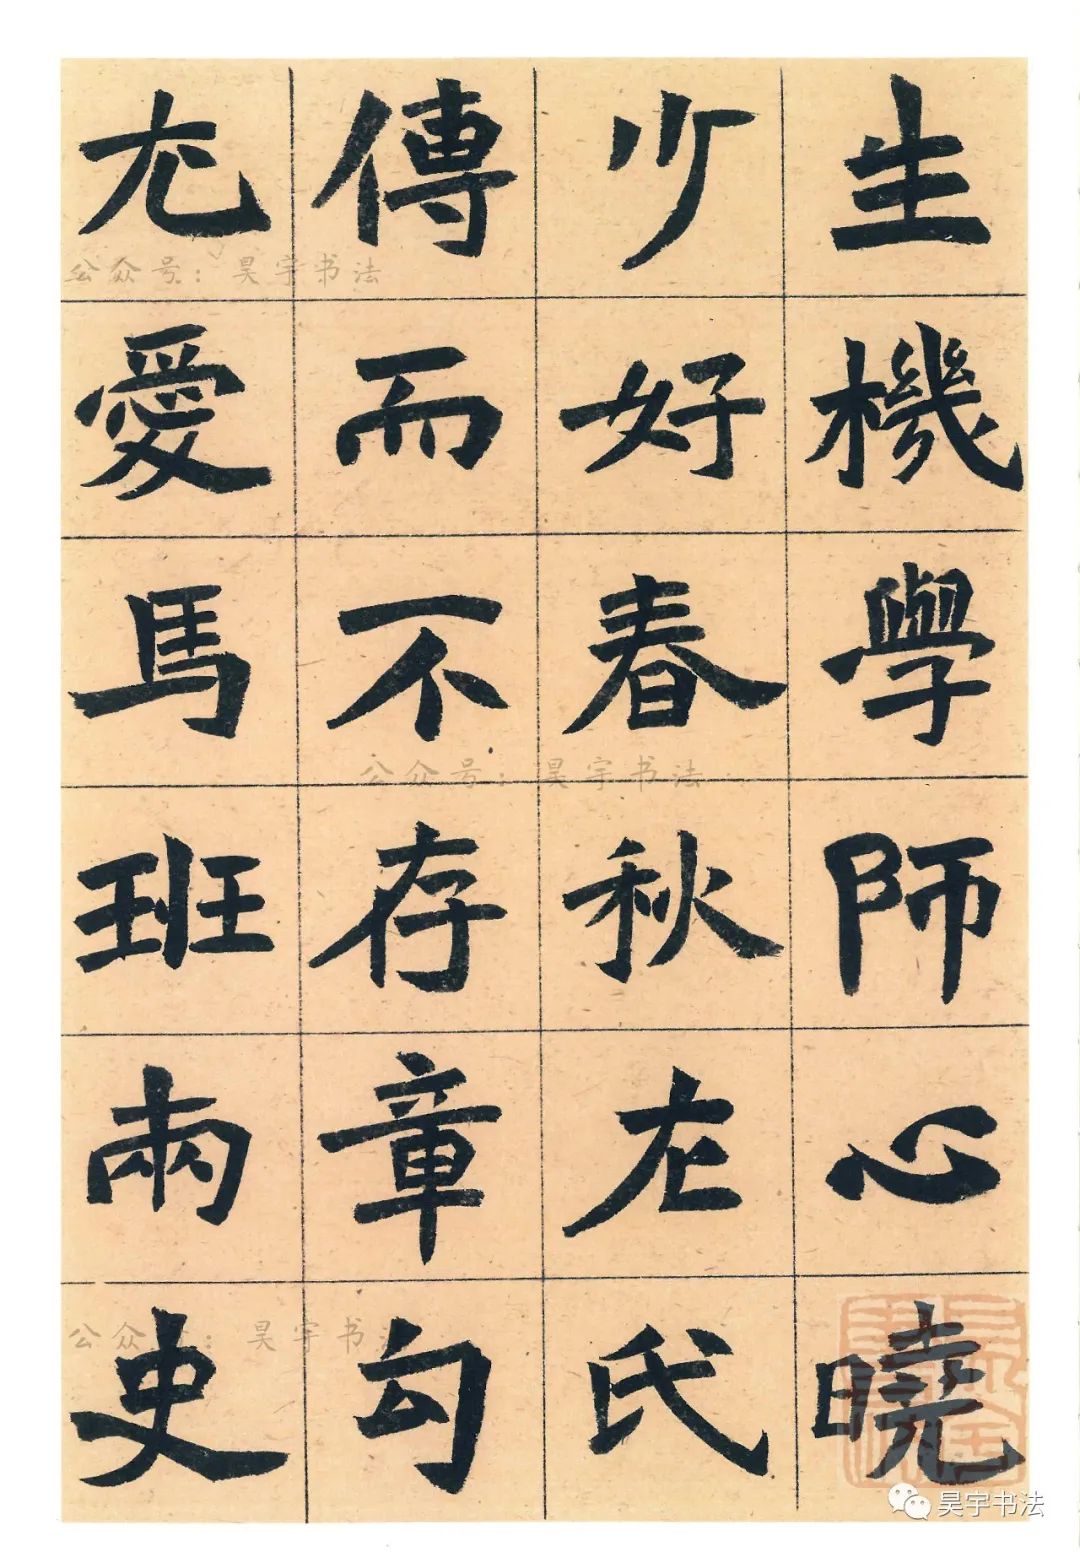 生機學師心曉
少好春秋左氏
傳而不存章句
尤愛馬班兩史
公众号：昊宇书法
公众号：昊宇书法
公众号：昊宇书
昊宇书法